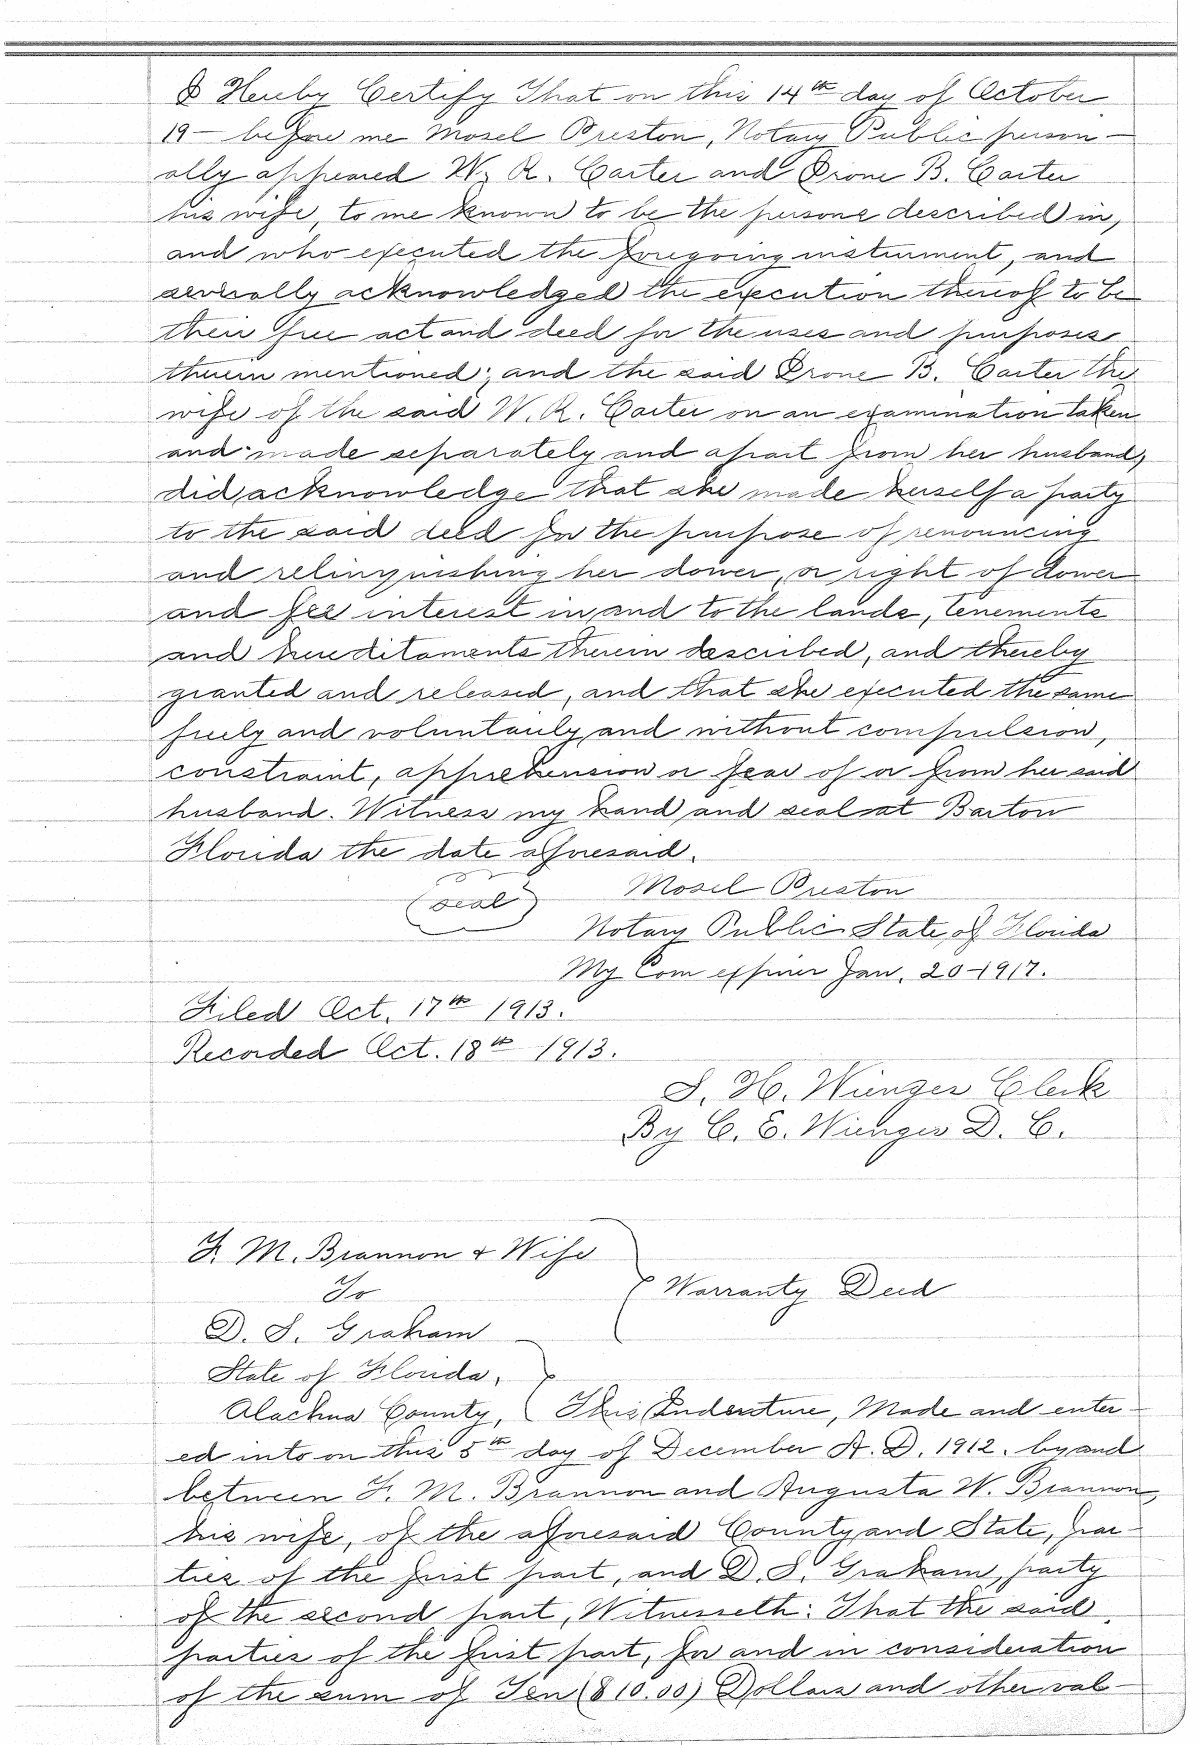 I Hereby Certify That on this 14th day of October
19— before me Mosel Preston, Notary Public person-
ally appeared W. R. Carter and Irone B. Carter
his wife, to me known to be the persons described in,
and who executed the foregoing instrument, and
severally acknowledged the execution thereof to be
their free act and deed for the uses and purposes
therein mentioned; and the said Irone B. Carter the
wife of the said W. R. Carter on an examination taken
and made separately and apart from her husband,
did acknowledge that she made herself a party
to the said deed for the purpose of renouncing
and relinquishing her dower, or right of dower
and fee interest in and to the lands, tenements
and hereditaments therein described, and thereby
granted and released, and that she executed the same
freely and voluntarily and without compulsion,
constraint, apprehension or fear of or from her said
husband. Witness my hand and seal at Bartow
Florida the date aforesaid.
(seal) Mosel Preston
Notary Public State of Florida
My Com expires Jan. 20-1917.
Filed Oct. 17th 1913.
Recorded Oct. 18th 1913.
S. H. Wienges Clerk
By C. E. Wienges D. C.
F. M. Brannon & Wife
To
Warranty Deed
D. S. Graham
State of Florida,
Alachua County, This Indenture, Made and enter-
ed into on this 5th day of December A. D. 1912. by and
between F. M. Brannon and Augusta W. Brannon,
his wife, of the aforesaid County and State, par-
ties of the first part, and D. S. Graham, party
of the second part, Witnesseth: That the said
parties of the first part, for and in consideration
of the sum of Ten ($10.00) Dollars and other val-